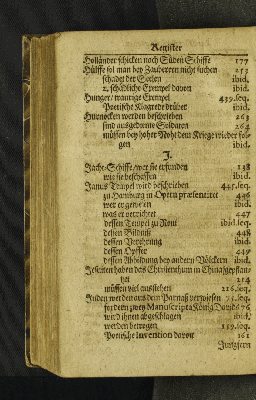 Register
Holländer schicken nach Süden Schiffe 177
Hülffe sol man bey Zauberern nicht suchen 253
schadet der Seelen ibid.
2. schädliche Exempel davon ibid.
Hunger/ traurige Exempel 439.seq.
Poetische Klagrede drüber ibid.
Hurnocken werden beschrieben 263
sind ausgediente Soldaten 264
müssen bey hoher Noht dem Kriege wieder folgen
gen ibid.
J.
Jacht-Schiffe/ wer sie erfunden 138
wie sie beschaffen ibid.
Janus Tempel wird beschrieben 445.seq.
zu Hamburg in Opern præsentiret 446
wer er gewesen ibid.
was er verrichtet 447
dessen Tempel zu Rom ibid.seq.
dessen Bildnis 448
dessen Verehrung ibid.
dessen Opffer 449
dessen Abbildung bey andern Völckern ibid.
Jesuiten haben das Christenthum in China gepflantzet
tzet 214
müssen viel ausstehen 226.seq.
Juden werden aus dem Parnaß verwiesen 75.seq.
fordern zwey Manuscripta König Davids 76
wird ihnen abgeschlagen ibid.
werden betrogen 159.seq.
Poetische Invention davon 161
Jungfern